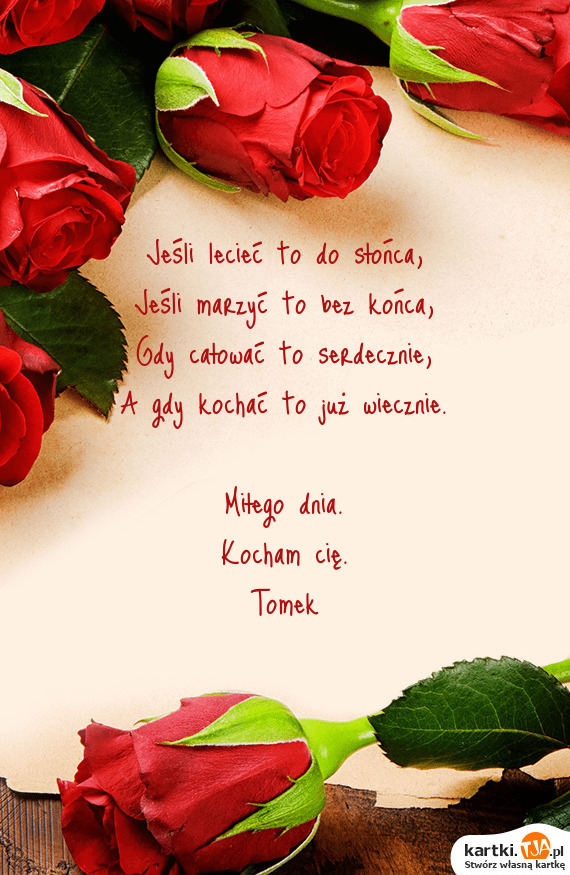 Jeśli lecieć to do słońca,
Jeśli marzyć to bez końca,
Gdy całować to serdecznie,
A gdy kochać to już wiecznie.
Miłego dnia.
Kocham cię.
Tomek
kartki.TJA.pl
Stwórz własną kartkę